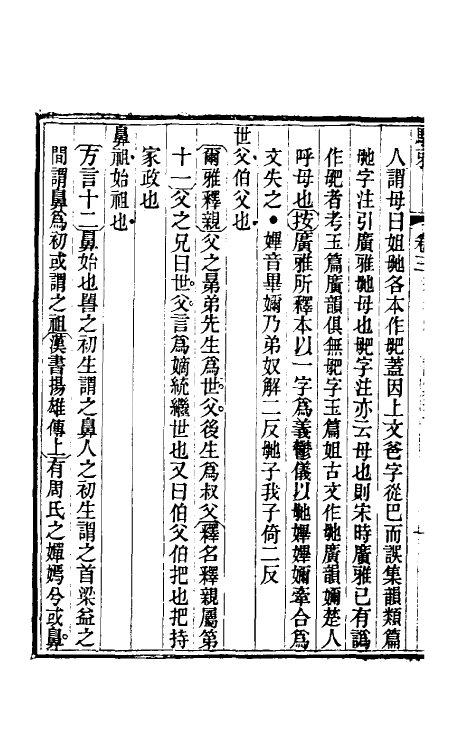 人謂母曰姐毑各本作䶕蓋因上文爸字從巴而誤集韻類篇
毑字注引廣雅毑母也䶕字注亦云母也則宋時廣雅已有譌
作䶕者考玉篇廣韻俱無䶕字玉篇姐古文作毑廣韻嬭楚人
呼母也按廣雅所釋本以一字爲義鬱儀以毑㜑㜑嬭牽合爲
文失之•㜑音畢嬭乃弟奴解二反毑子我子倚二反
世父伯父也
爾雅釋親父之晜弟先生爲世父後生爲叔父釋名釋親屬第
十一父之兄曰世父言爲嫡統繼世也又曰伯父伯把也把持
家政也
鼻祖始祖也
方言十二鼻始也嘼之初生謂之鼻人之初生謂之首梁益之
間謂鼻爲初或謂之祖漢書揚雄傳上有周氏之嬋嫣兮或鼻